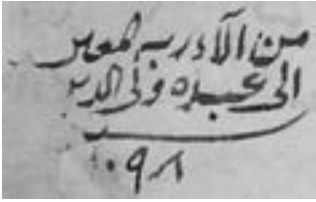 من الآدر به المعير
الى عبده ولى الدين
١٠٩٨